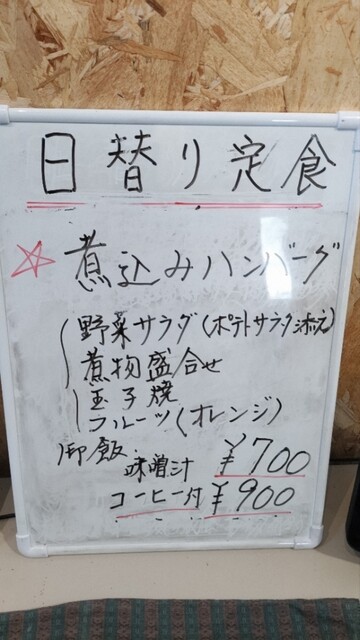 日替り定食
☆煮込みハンバーグ
野菜サラダ(ポテトサラダ添え)
煮物盛合せ
玉子焼
フルーツ(オレンジ)
御飯
味噌汁 ¥700
コーヒー付 ¥900